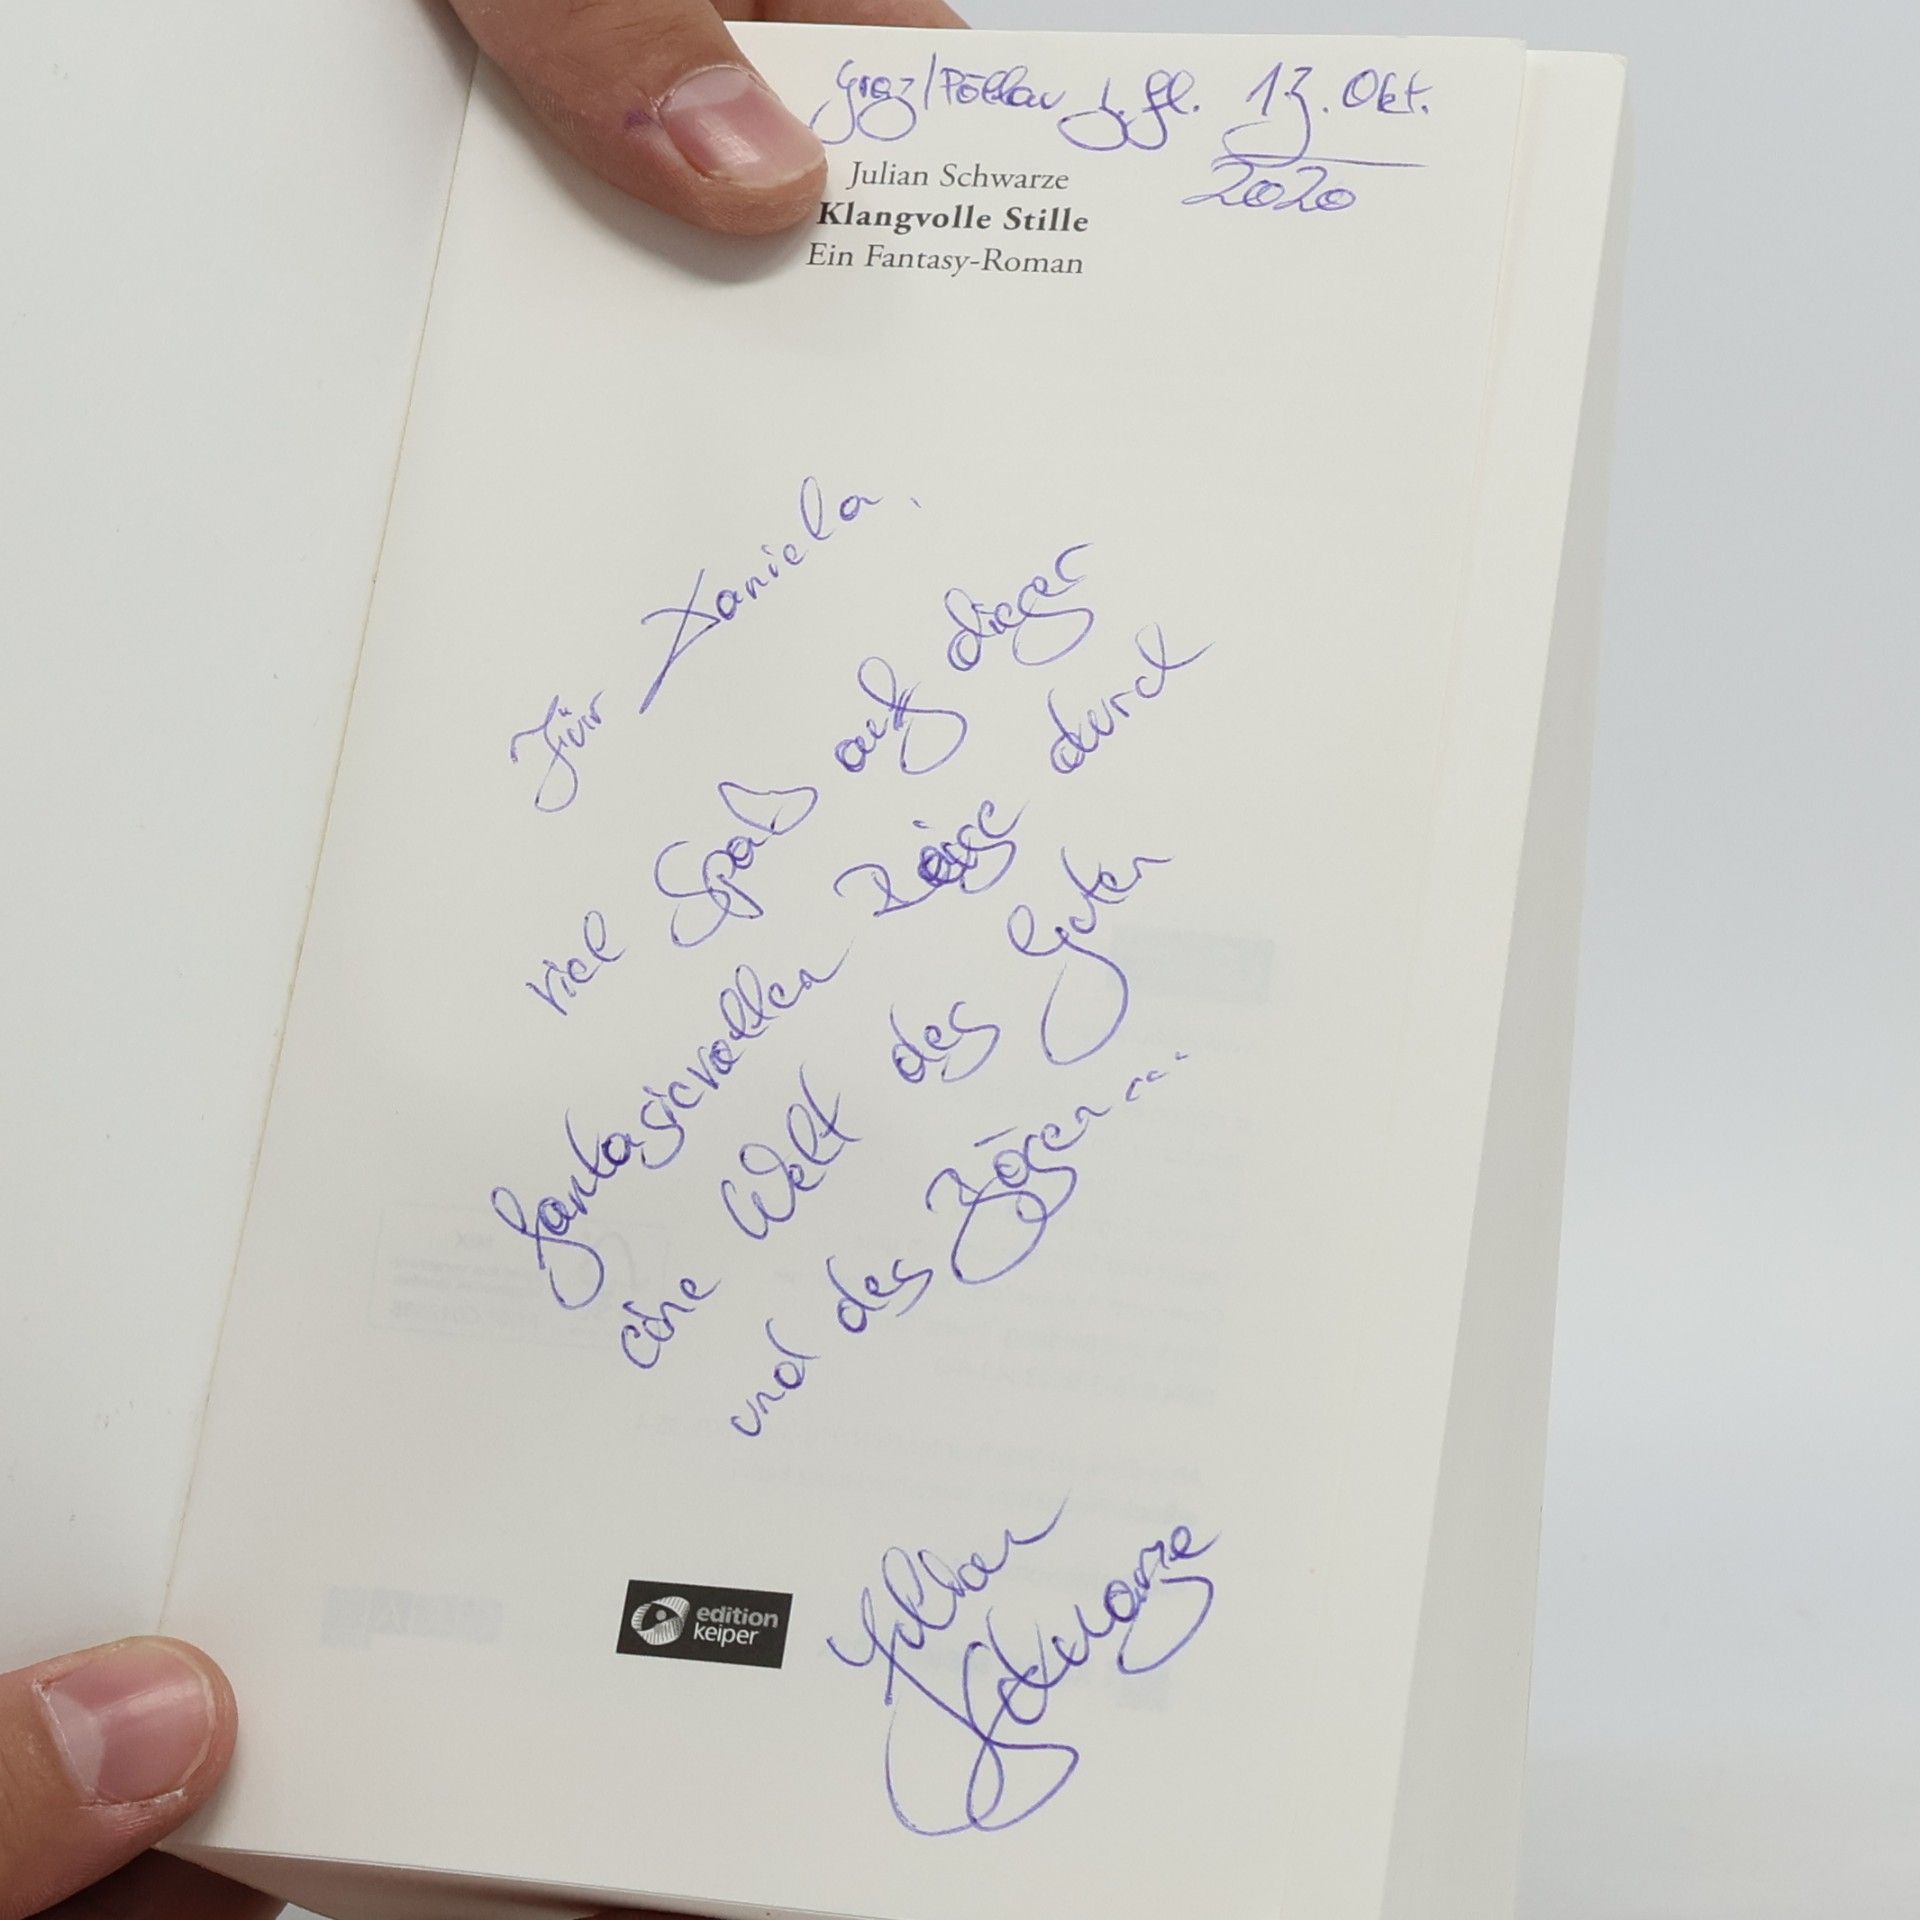 Graz/Pöllau 13. Okt.
2020
Julian Schwarze
Klangvolle Stille
Ein Fantasy-Roman
Für Daniela.
viel Spaß auf dieser
fantasievollen Reise durch
eine Welt des Guten
und des Bösen...
Julian
Schwarze
edition
keiper